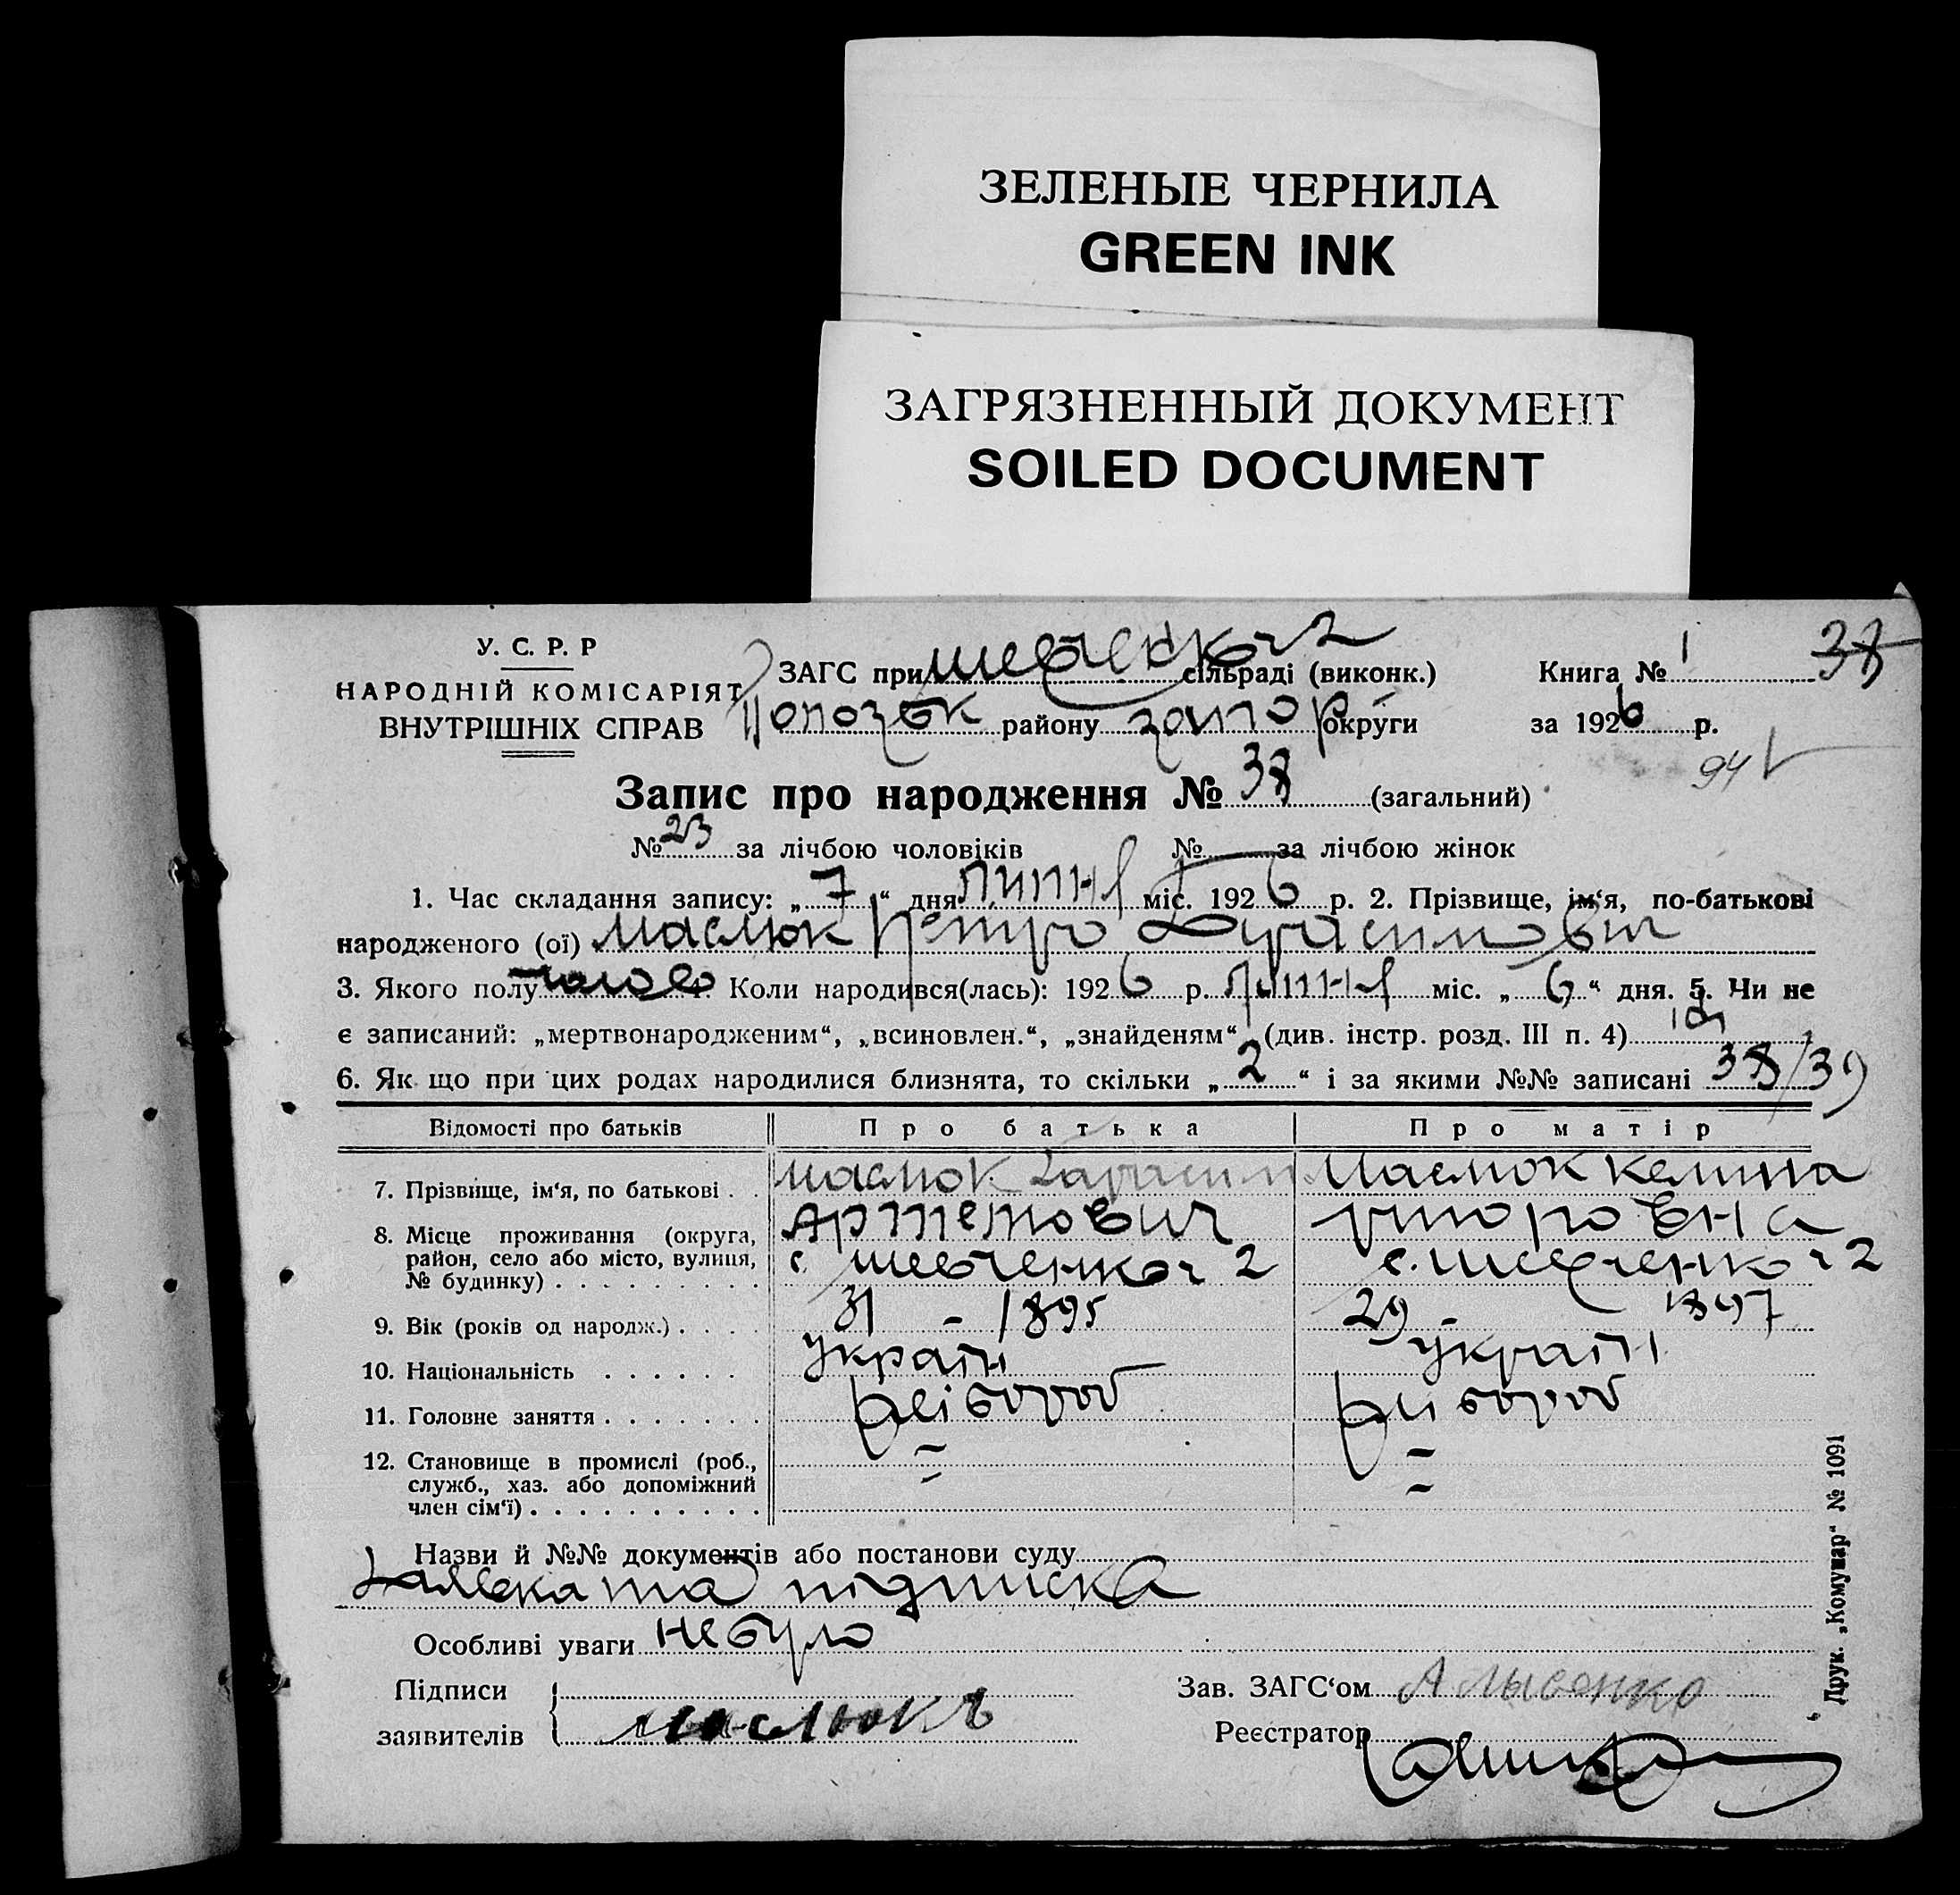 ЗЕЛЕНЫЕ ЧЕРНИЛА
GREEN INK
ЗАГРЯЗНЕННЫЙ ДОКУМЕНТ
SOILED DOCUMENT
У. С. Р. Р
НАРОДНІЙ КОМІСАРІЯТ
ВНУТРІШНІХ СПРАВ
ЗАГС при Шевченко 2 сільраді (виконк.)
району запор округи
Книга № 1
за 1926 р.
38
94
Запис про народження № 38 (загальний)
№ 23 за лічбою чоловіків № за лічбою жінок
1. Час складання запису: „7“ дня липня міс. 1926 р. 2. Прізвище, ім‘я, по-батькові
народженого (ої) Маслюк Петро
3. Якого полу чолов 4. Коли народився(лась): 1926 р. липня міс. „6“ дня. 5. Чи не
є записаний: „мертвонародженим“, „всиновлен.“, „знайденям“ (див. інстр. розд. III п. 4)
6. Як що при цих родах народилися близнята, то скільки „2“ і за якими №№ записані 38/39
Відомості про батьків Про батька Про матір
7. Прізвище, ім‘я, по батькові . . Маслюк Маслюк
Артемович
8. Місце проживання (округа, район, село або місто, вулиця, № будинку) . . . . . . . . . с. Шевченко 2 с. Шевченко 2
9. Вік (років од народж.) . . . . 31 - 1895 29 - 1897
10. Національність . . . . . . україн україн
11. Головне заняття . . . . . . . хлібороб хлібороб
12. Становище в промислі (роб., служб., хаз. або допоміжний член сім‘ї) . . . . . . . . . . - - - -
Назви й №№ документів або постанови суду
Заявка та підписка
Особливі уваги не було
Підписи
заявителів
Маслюкъ
Зав. ЗАГС‘ом А Лысенко
Реєстратор
Друк. „Комунар“ № 1091